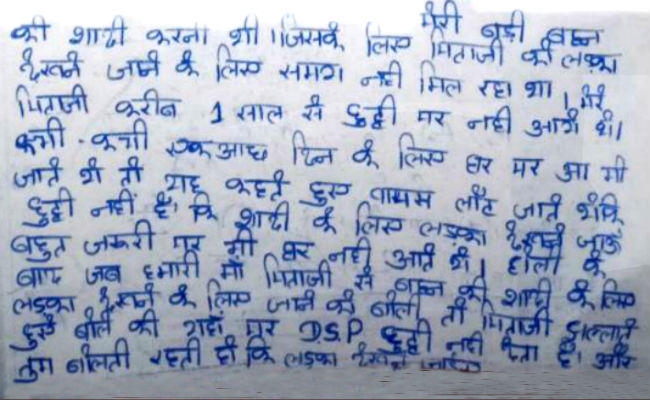 मेरी बड़ी बहन
की शादी करना थी। जिसके लिए पिताजी को लड़का
देखने जाने के लिए समय नही मिल रहा था। मेरे
पिताजी करीब 1 साल से छुट्टी पर नही आये थे।
कभी-कभी एकआध दिन के लिए घर पर आ भी
जाते थे तो यह कहते हुए वापस लौट जाते थेकि
छुट्टी नहीं है। कि शादी के लिए लड़का देखने जाऊ
बहुत जरूरी पर भी घर नही आते थे। होली के
बाद जब हमारी माँ पिताजी से बहन की शादी के लिए
लडका देखने के लिए जाने को बोली तो पिताजी झल्लाते
हुये बोले की यहाँ पर D.S.P छुट्टी नही देता है। और
तुम बोलती रहती हो कि लडका देखने जाइए